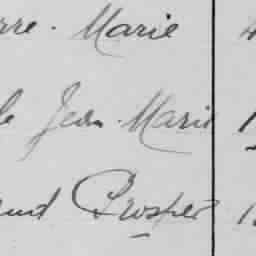 rre. Marie 4
le Jean. Marie 1
and Prosper 1